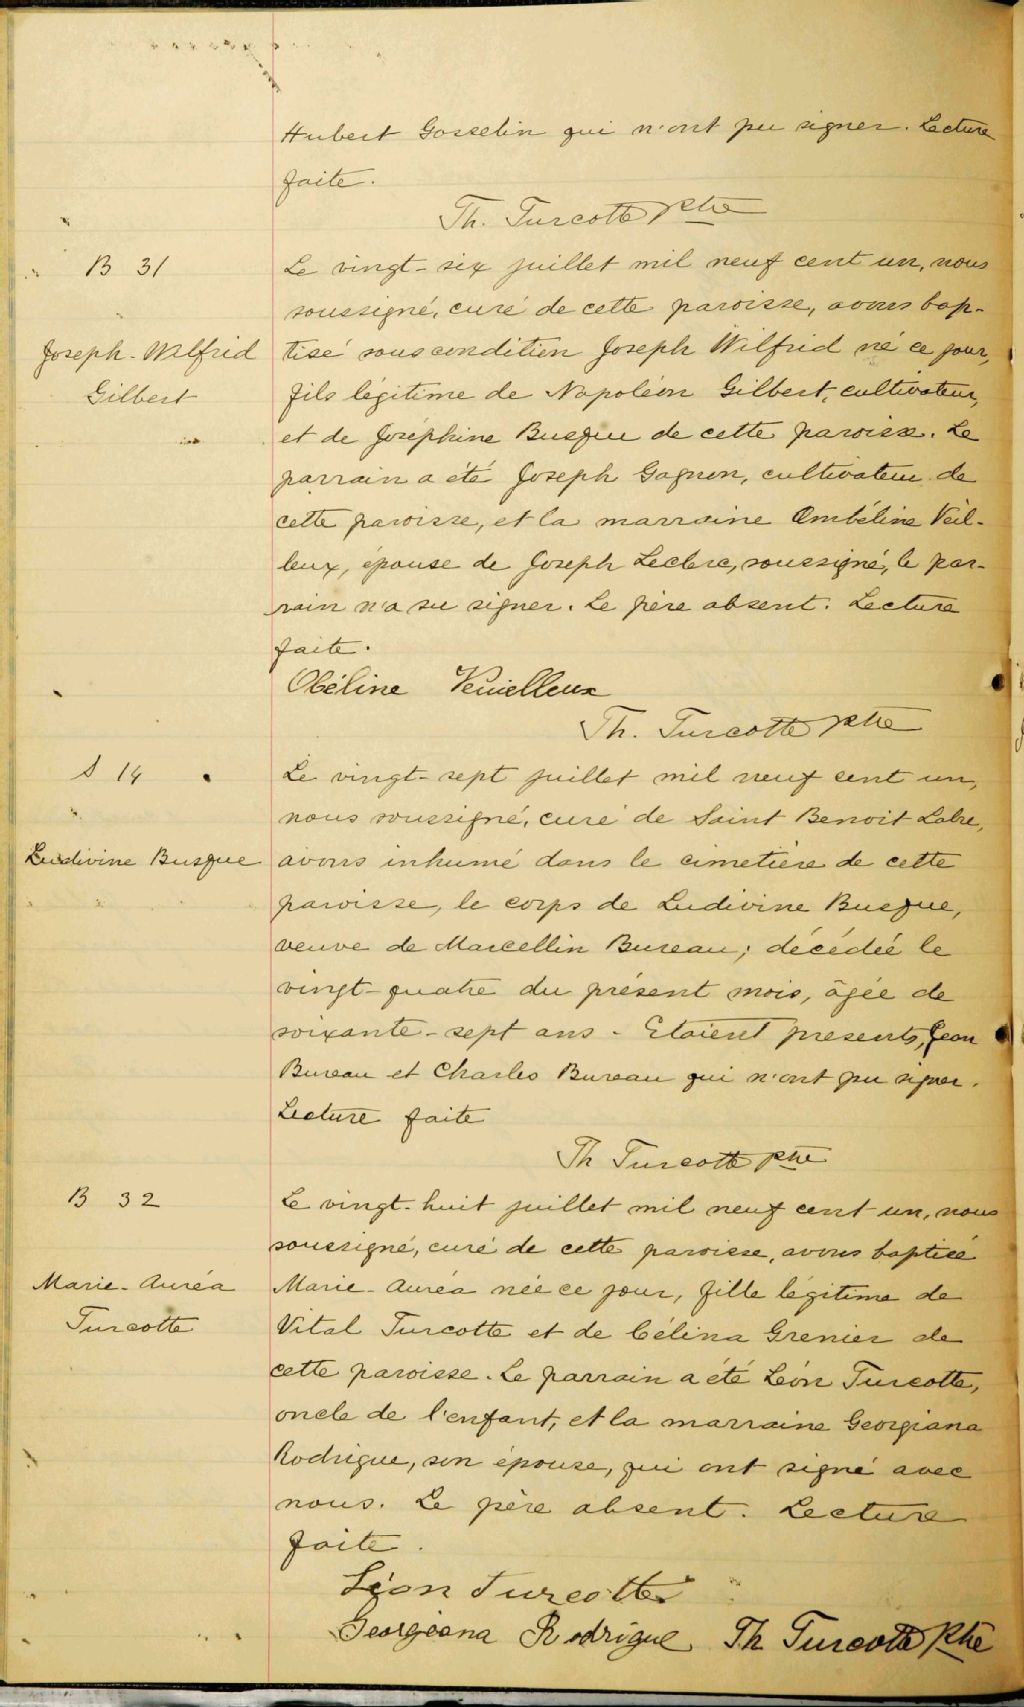 Hubert Gosselin qui n'ont pu signer. Lecture
faite.
Th. Turcotte ptre
B 31
Le vingt-six juillet mil neuf cent un, nous
soussigné, curé de cette paroisse, avons bap-
Joseph-Wilfrid
tisé sous condition Joseph Wilfrid né ce jour,
Gilbert
fils légitime de Napoléon Gilbert, cultivateur,
et de Joséphine Busque de cette paroisse. Le
parrain a été Joseph Gagnon, cultivateur de
cette paroisse, et la marraine Ombéline Veil-
leux, épouse de Joseph Leclerc, soussigné, le par-
rain n'a su signer. Le père absent. Lecture
faite.
Obéline Veuielleux
Th. Turcotte ptre
S 14
Le vingt-sept juillet mil neuf cent un,
nous soussigné, curé de Saint Benoit Labre,
Ludivine Busque
avons inhumé dans le cimetière de cette
paroisse, le corps de Ludivine Busque,
veuve de Marcellin Bureau; décédée le
vingt-quatre du présent mois, âgée de
soixante-sept ans - Etaient presents, Jean
Bureau et Charles Bureau qui n'ont pu signer.
Lecture faite
Th Turcotte ptre
B 32
Le vingt-huit juillet mil neuf cent un, nous
soussigné, curé de cette paroisse, avons baptisé
Marie-Auréa
Marie-Auréa née ce jour, fille légitime de
Turcotte
Vital Turcotte et de Célina Grenier de
cette paroisse. Le parrain a été Léon Turcotte,
oncle de l'enfant, et la marraine Georgiana
Rodrigue, son épouse, qui ont signé avec
nous. Le père absent. Lecture
faite.
Léon Turcotte
Georgeana Rodrigue Th Turcotte ptre